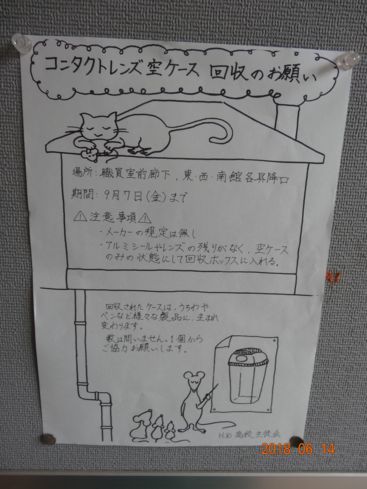 コンタクトレンズ空ケース 回収のお願い
場所:職員室前廊下、東・西・南館各昇降口
期間:9月7日(金)まで
⚠注意事項⚠
・メーカーの規定は無し
・アルミシールやレンズの残りがなく、空ケース
のみの状態にして回収ボックスに入れる。
回収されたケースは、うちわや
ペンなど様々な製品に、生まれ
変わります。
数は問いません。1個から
ご協力お願いします。
高校 生徒会
2018.06.14